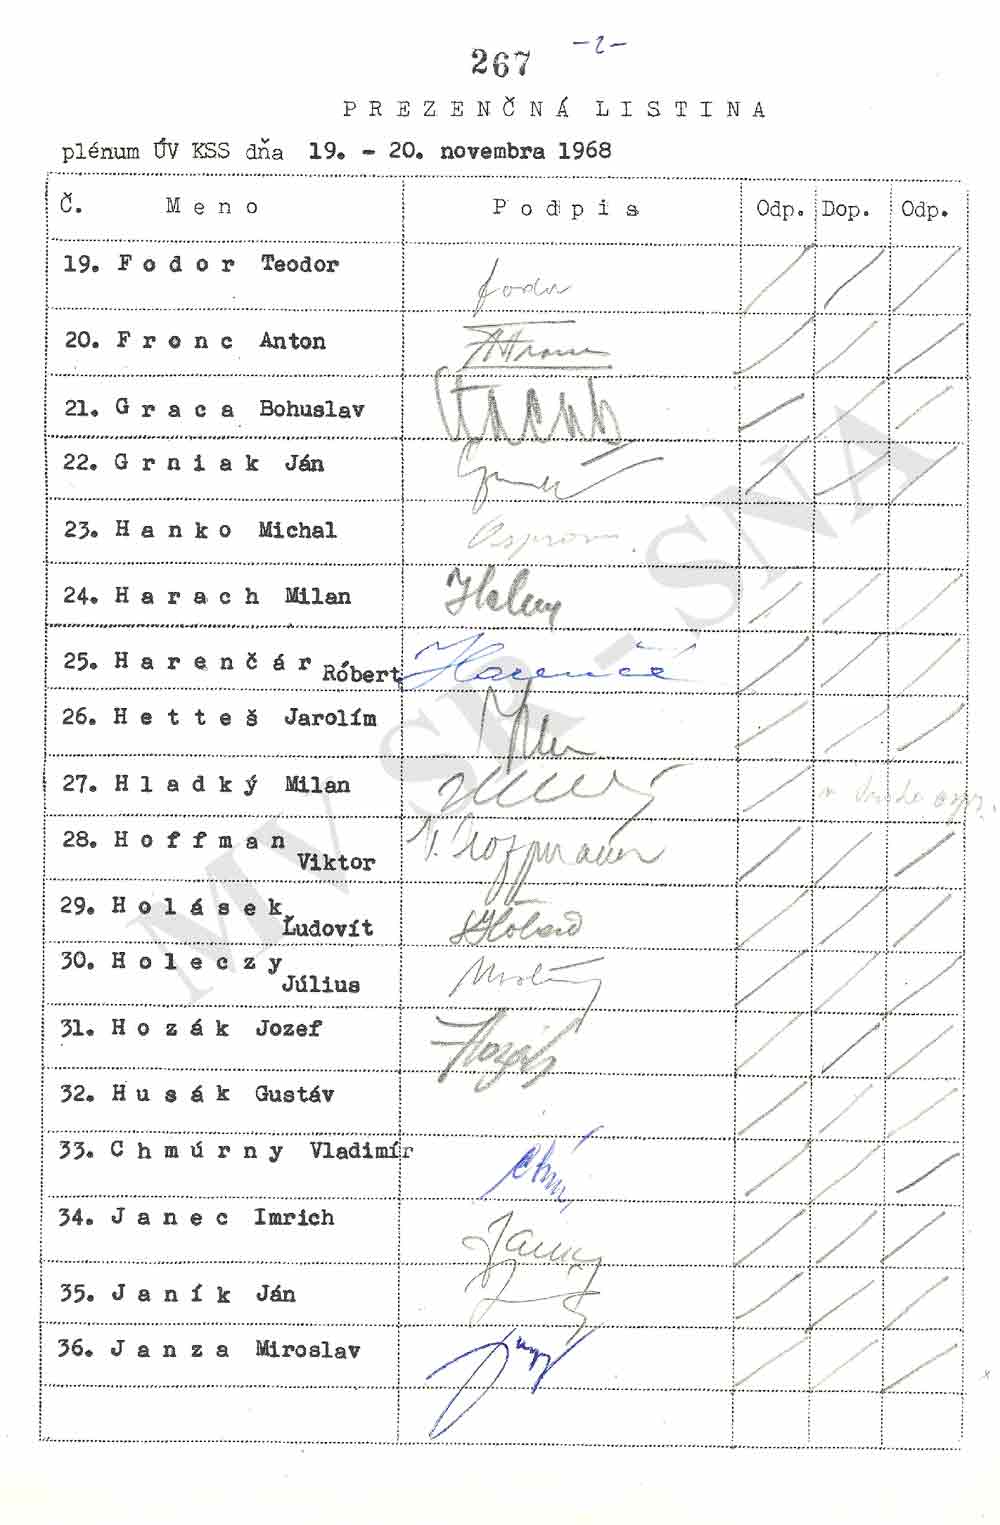 267 -2-
PREZENČNÁ LISTINA
plénum ÚV KSS dňa 19. - 20. novembra 1968
Č. Meno Podpis Odp. Dop. Odp.
19. Fodor Teodor Fodor
20. Fronc Anton
21. Graca Bohuslav
22. Grniak Ján
23. Hanko Michal Ospravn.
24. Harach Milan
25. Harenčár Róbert
26. Hetteš Jarolím
27. Hladký Milan
28. Hoffman Viktor V. Hoffmann
29. Holásek Ľudovít
30. Holeczy Július
31. Hozák Jozef Hozák
32. Husák Gustáv
33. Chmúrny Vladimír
34. Janec Imrich
35. Janík Ján
36. Janza Miroslav
MV SR - SNA